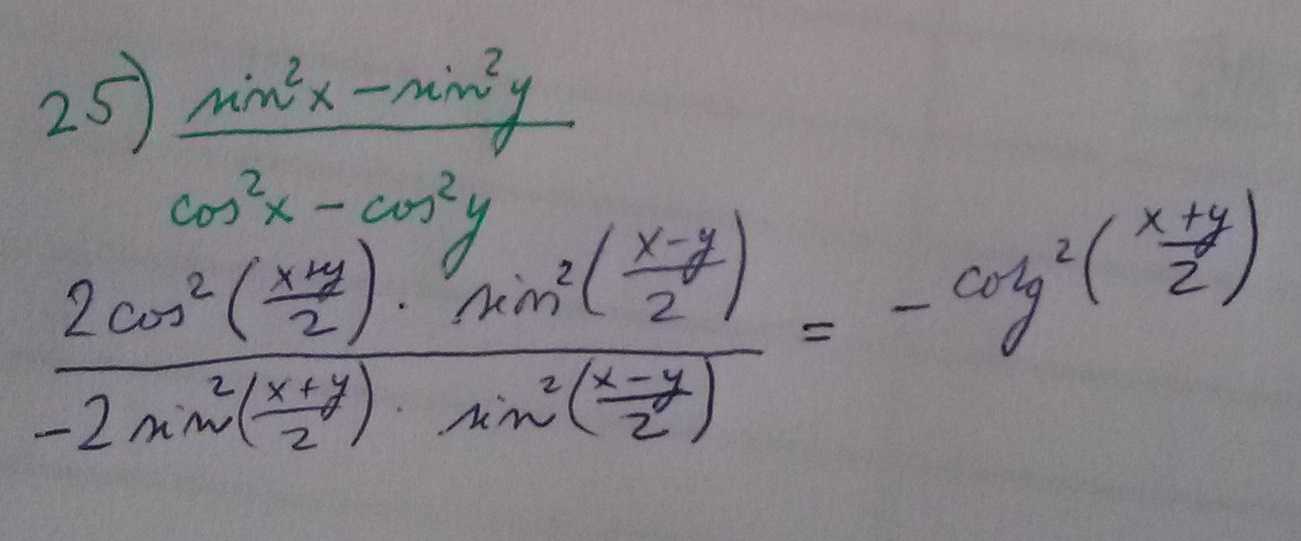 25) \frac{sin²x - sin²y}{cos²x - cos²y}
\frac{2cos²(\frac{x+y}{2}) · sin²(\frac{x-y}{2})}{-2sin²(\frac{x+y}{2}) · sin²(\frac{x-y}{2})} = -cotg²(\frac{x+y}{2})